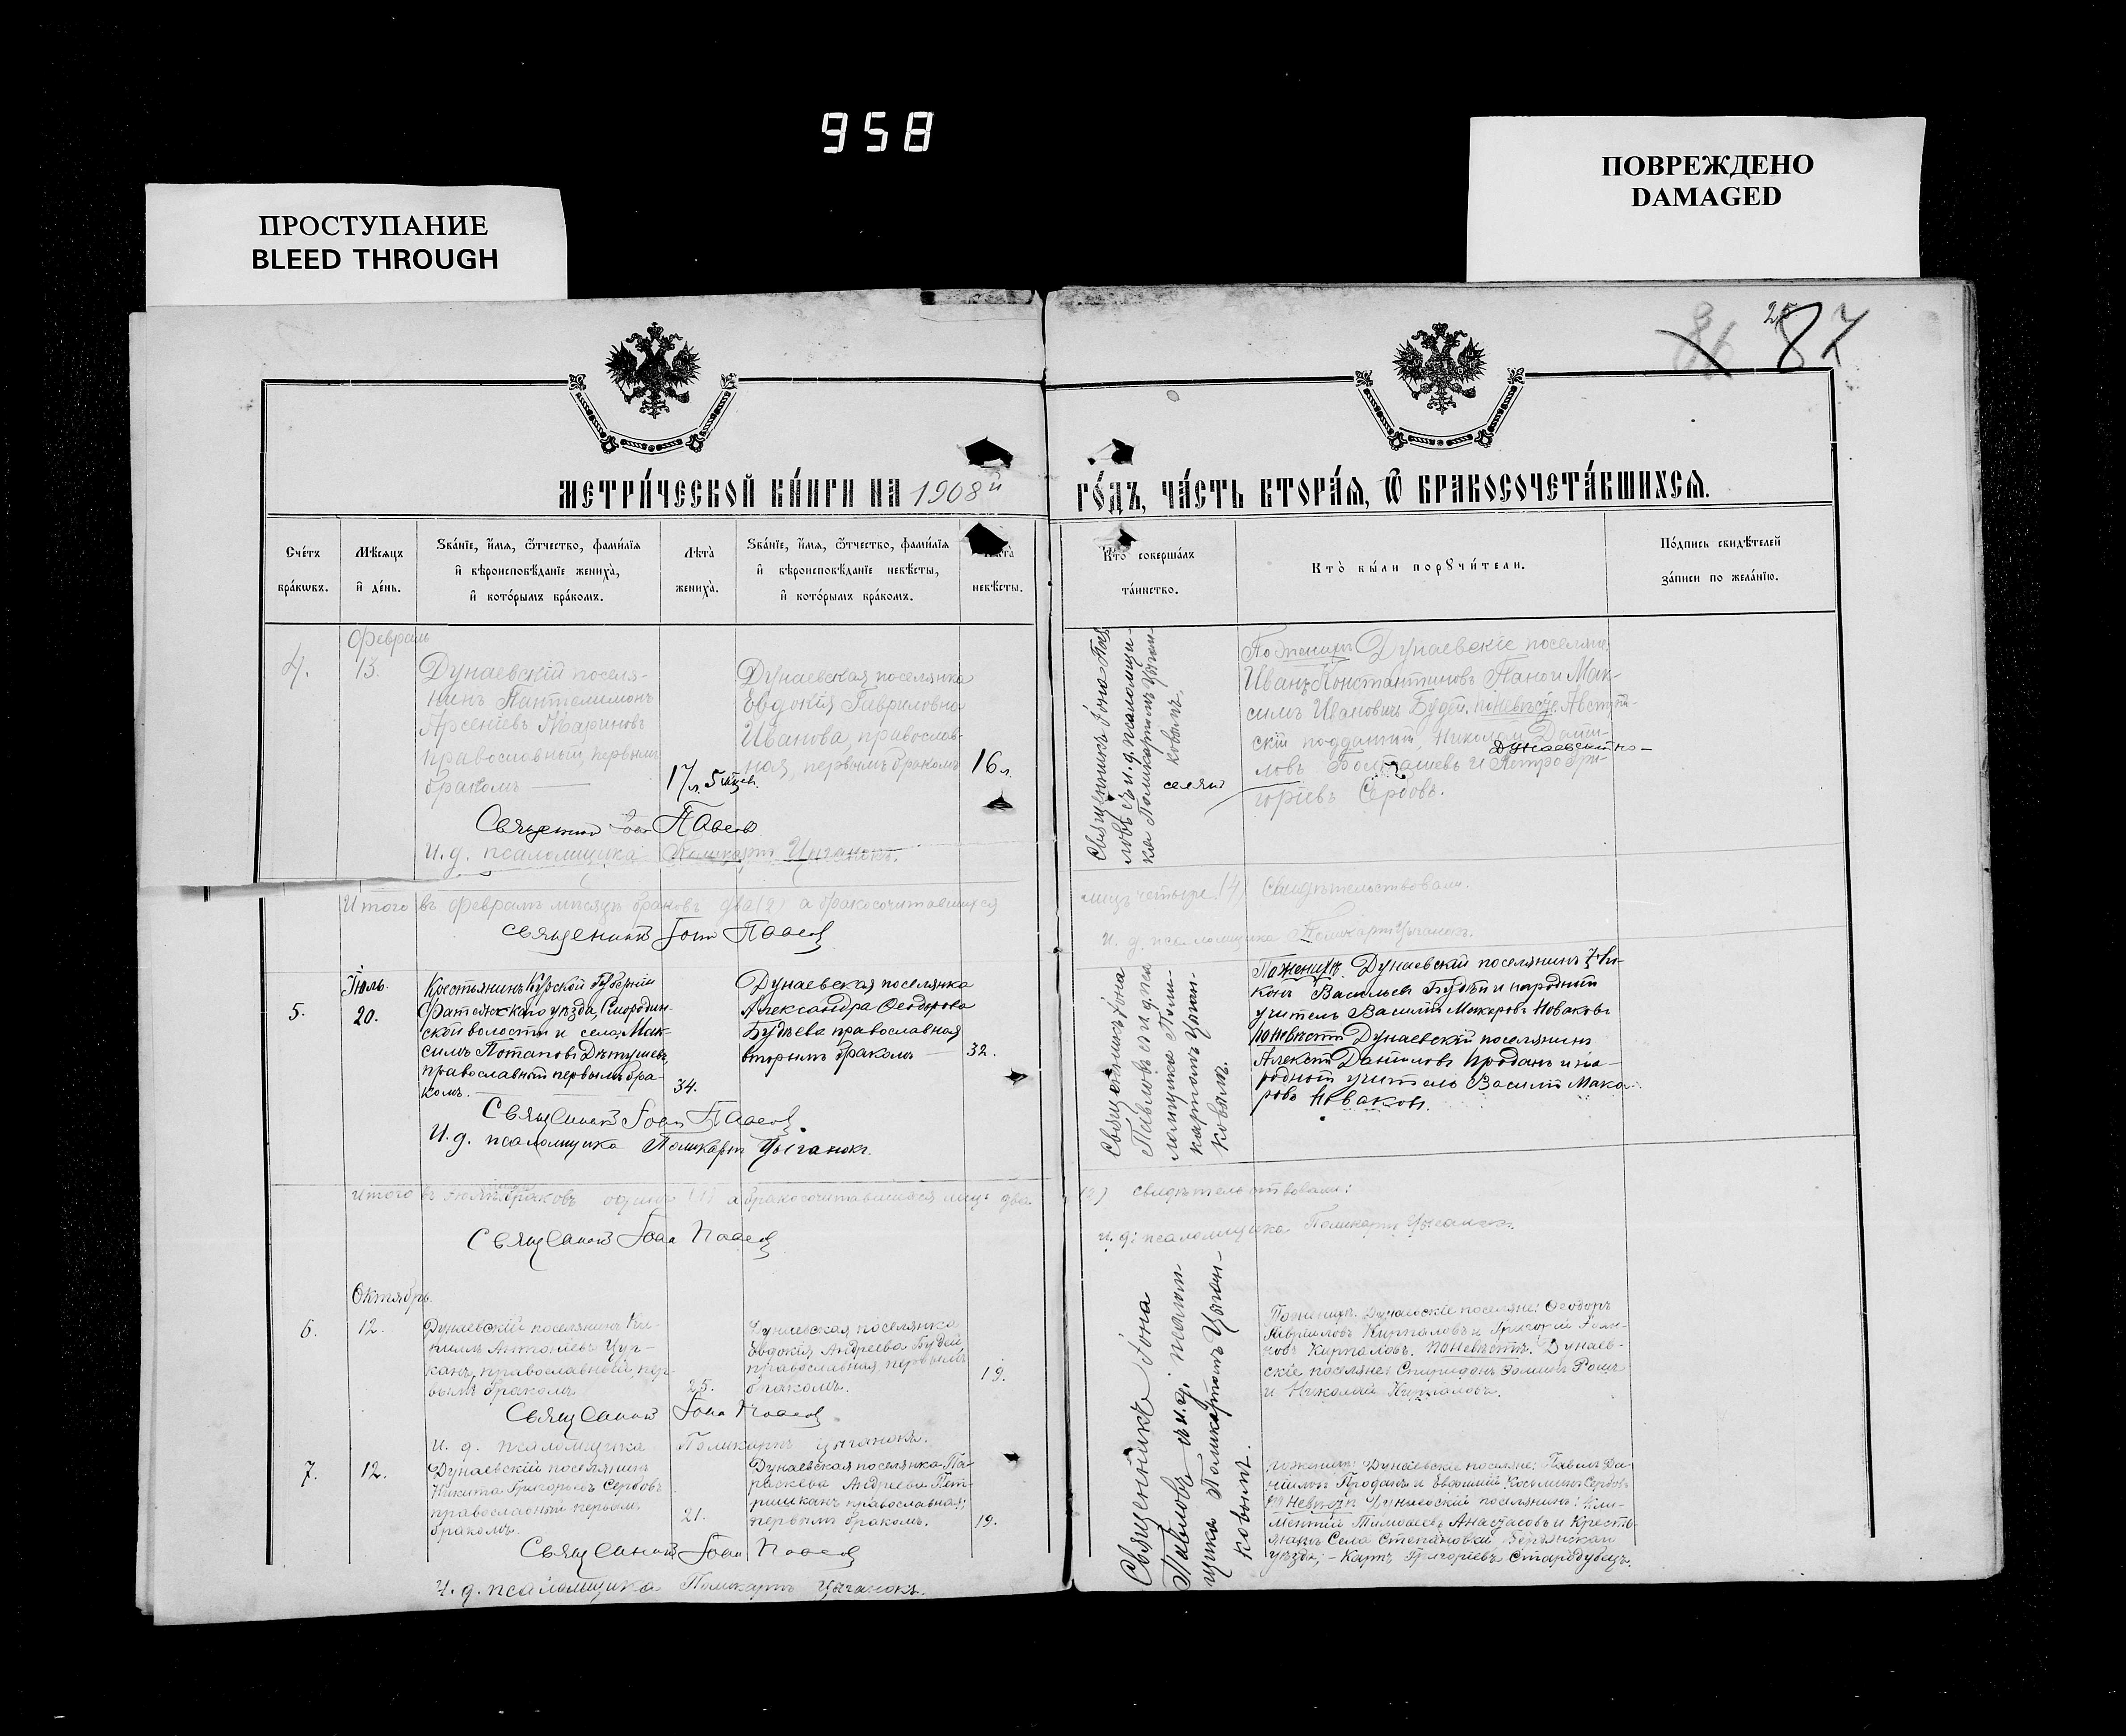 958
ПРОСТУПАНИЕ
BLEED THROUGH
ПОВРЕЖДЕНО
DAMAGED
86 25 87
МЕТРИ́ЧЕСКОЙ КНИ́ГИ НА 1908й
ГО́ДЪ, ЧА́СТЬ ВТОРА́Ѧ, Ѽ БРАКОСОЧЕТА́ВШИХСѦ.
Счетъ
бракѡвъ.
Мѣсяцъ
и день.
Званіе, имя, ѿчество, фамилія
и вѣроисповѣданіе жениха,
и которымъ бракомъ.
Лѣта
жениха.
Званіе, имя, ѿчество, фамилія
и вѣроисповѣданіе невѣсты,
и которымъ бракомъ.
Лѣта
невѣсты.
Кто совершалъ
таинство.
Кто были поручители.
Подпись свидѣтелей
записи по желанію.
4.
Февраль
13.
Дунаевскій поселя-
нинъ Пантелимонъ
Арсеніевъ Мариновъ
православный, первымъ
бракомъ
17 л. 5 мѣсяц.
Дунаевская поселянка
Евдокія Гавриловна
Иванова, православ-
ная, первымъ бракомъ
16 л.
Священникъ Іона Пав
ловъ съ и.д. псаломщи-
ка Поликарпомъ Цыган-
ковымъ.
По женихѣ Дунаевскіе поселяне
Иванъ Константиновъ Панои Мак-
симъ Ивановичъ Будей, по невѣстѣ Австрій-
скій подданный, Николай Дании-
Дунаевскій по-
ловъ и Петро Гри-
селян
горіевъ Сербовъ.
Священникъ Іона Павлов
И. д. псаломщика Поликарпъ Цыганокъ.
Итого въ февралѣ мѣсяцѣ браковъ два (2) а бракосочитавшихся
лицъ четыре (4) Свидѣтельствовали.
Священникъ Іона Павлов
и. д. псаломщика Поликарпъ Цыганокъ.
5.
Іюль.
20.
Крестьянинъ Курской Губерніи
Фатежскаго уѣзда, Смородин-
ской волости и села, Мак-
симъ Потаповъ Дѣтушевъ,
православный первымъ бра-
комъ.
34.
Дунаевская поселянка
Александра Ѳеодорова
Будѣева православная
вторымъ бракомъ
32.
Священникъ Іона
Павловъ съ и.д. пса
ломщика Поли-
карпомъ Цыган-
ковымъ.
По женихѣ. Дунаевскій поселянинъ
Васильевъ Будѣй и народный
учитель Василій Макаровъ Новаковъ
по невѣстѣ Дунаевскій поселянинъ
Алексѣй Даниловъ Проданъ и на-
родный учитель Василій Мака-
ровъ Новаковъ.
Священникъ Іона Павлов
И. д. псаломщика Поликарпъ Цыганокъ.
Итого въ Іюлѣ браковъ одинъ (1) а бракосочитавшихся лицъ два
(2) свидѣтельствовали:
Священникъ Іона Павлов
и. д. псаломщика Поликарпъ Цыганокъ.
6.
Октябрь.
12.
Дунаевскій поселянинъ Ки-
риллъ Антоніевъ Чур-
канъ, православный, пер-
вымъ бракомъ
25.
Дунаевская поселянка
Евдокія Андреева Будей,
православная первымъ
бракомъ.
19.
Священникъ Іона
Павловъ съ и.д. псалом-
щика Поликарпомъ Цыган-
ковымъ.
По женихѣ. Дунаевскіе поселяне: Ѳеодоръ
Гавриловъ Кирпаловъ и Григорій
Кирпаловъ. По невѣстѣ. Дунаев-
скіе поселяне: Спиридонъ
и Николай Кирпаловъ.
Священникъ Іона Павлов
И. д. псаломщика Поликарпъ Цыганокъ.
7.
12.
Дунаевскій поселянинъ
Никита Григорьевъ Сербовъ
православный первымъ
бракомъ.
21.
Дунаевская поселянка Па-
раскева Андреева Пет-
ришканъ православная;
первымъ бракомъ.
19.
По женихѣ: Дунаевскіе поселяне: Павелъ Да-
ниловъ Проданъ и Евфимій Косьминъ Сербовъ
по невѣстѣ Дунаевскій поселянинъ: Кли-
ментій Тимоѳеевъ Анастасовъ и Кресть-
янинъ Села Степановки Бердянскаго
уѣзда; - Карпъ Григорьевъ Стародубецъ.
Священникъ Іона Павлов
И. д. псаломщика Поликарпъ Цыганокъ.